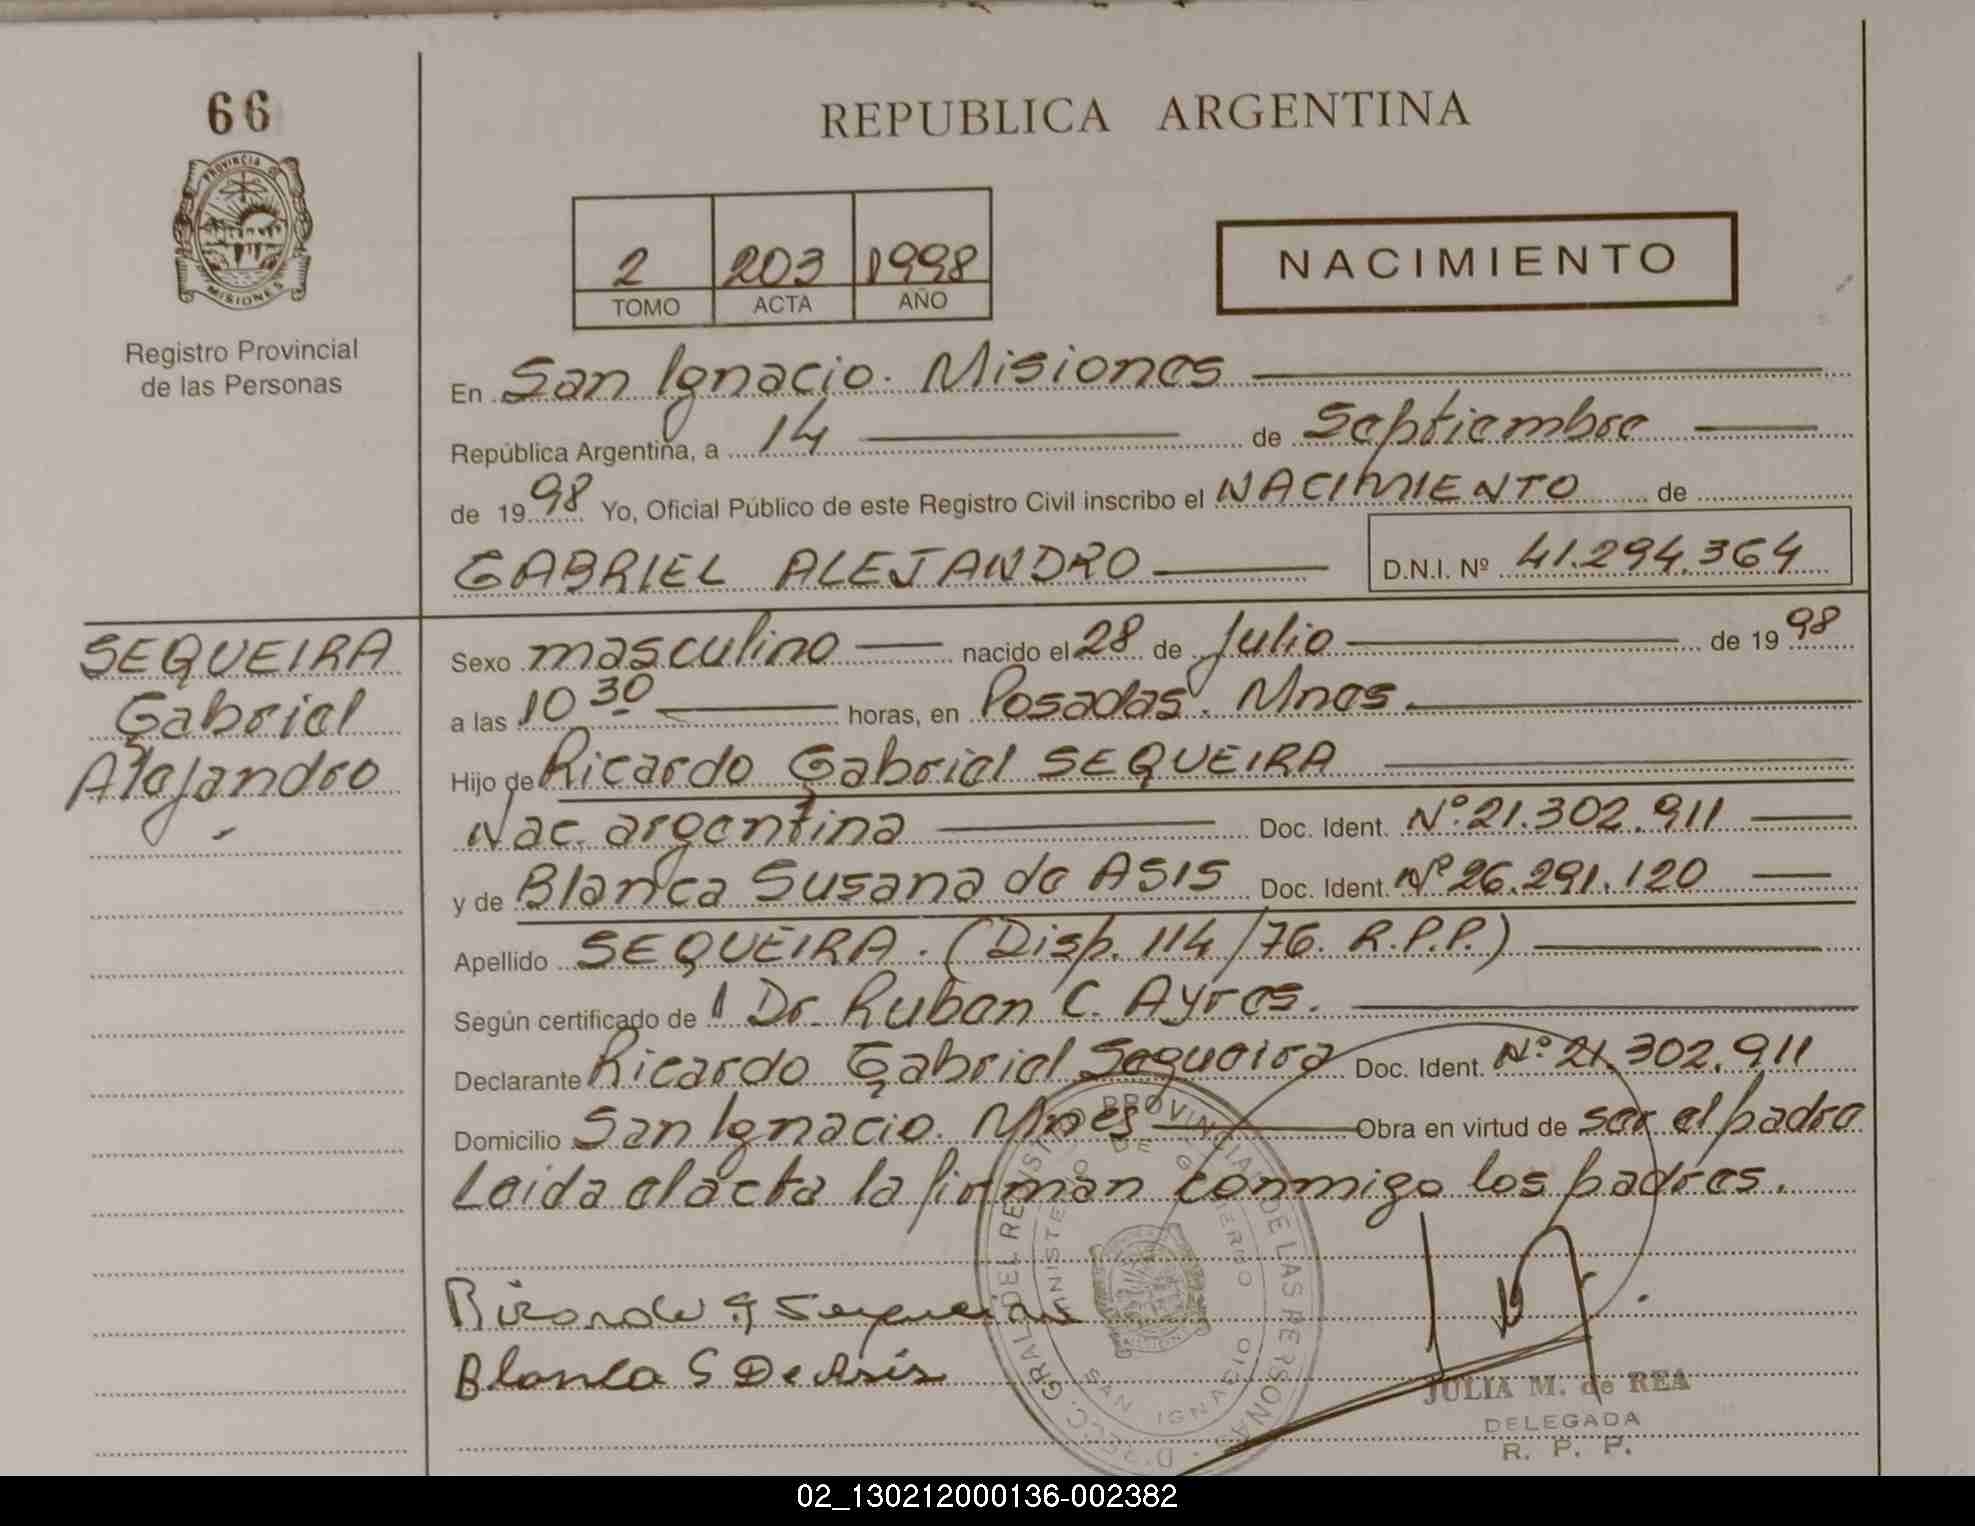 66
PROVINCIA DE
MISIONES
Registro Provincial
de las Personas
REPUBLICA ARGENTINA
2 203 1998
TOMO ACTA AÑO
NACIMIENTO
En San Ignacio. Misiones
República Argentina, a 14 de Septiembre
de 1998 Yo, Oficial Público de este Registro Civil inscribo el NACIMIENTO de
GABRIEL ALEJANDRO D.N.I. Nº 41.294.364
SEQUEIRA
Gabriel
Alejandro
Sexo masculino nacido el 28 de Julio de 1998
a las 10 30 horas, en Posadas. Mnes.
Hijo de Ricardo Gabriel SEQUEIRA
Nac. argentina Doc. Ident. Nº 21.302.911
y de Blanca Susana de ASIS Doc. Ident. Nº 26.291.120
Apellido SEQUEIRA. (Disp. 114/76. R.P.P.)
Según certificado de l Dr. Ruben C. Ayres.
Declarante Ricardo Gabriel Sequeira Doc. Ident. Nº 21.302.911
Domicilio San Ignacio. Mnes Obra en virtud de ser el padre
Leida el acta la firman conmigo los padres.
Ricardo G Sequeira
Blanca S De Asis
DIRECC. GRAL. DEL REGISTRO PROVINCIAL DE LAS PERSONAS
MINISTERIO DE GOBIERNO
SAN IGNACIO
JULIA M. de REA
DELEGADA
R. P. P.
02_130212000136-002382